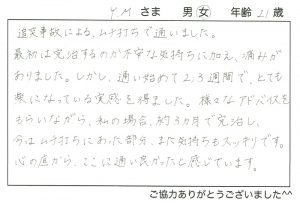 Y.M さま 男 女 年齢 21 歳
追突事故による、ムチ打ちで通いました。
最初は完治するのか不安な気持ちに加え、痛みが
ありました。しかし、通い始めて2,3週間で、とても
楽になっている実感を得ました。様々なアドバイスを
もらいながら、私の場合、約3ヵ月で完治し、
今はムチ打ちにあった部分、また気持ちもスッキリです。
心の底から、ここに通い良かったと感じています。
ご協力ありがとうございました^^